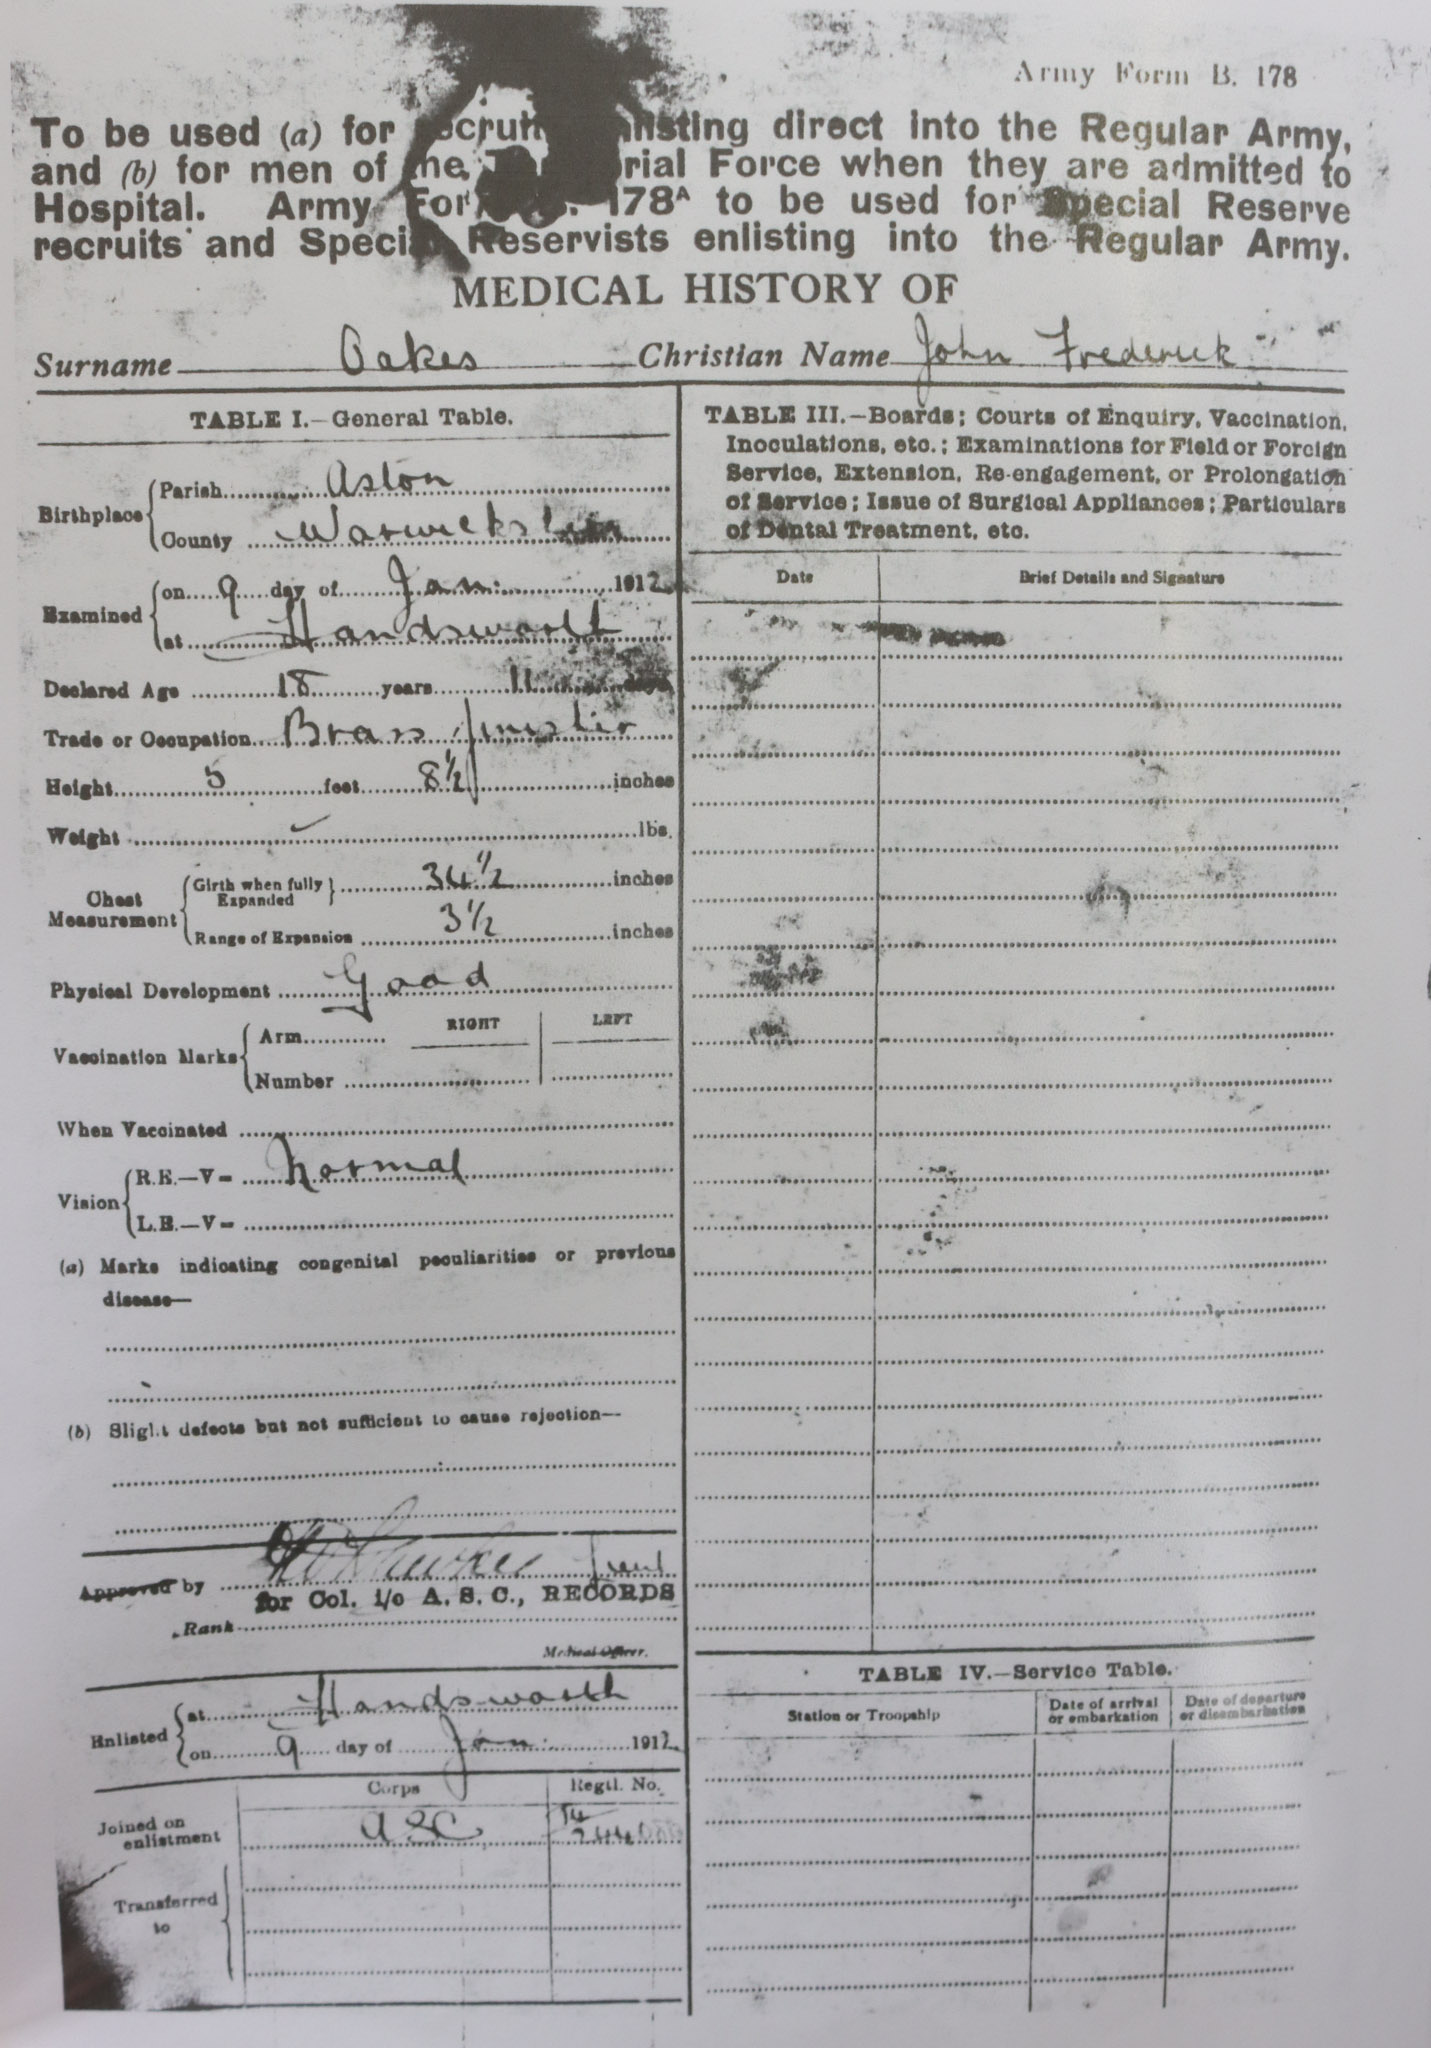 Army Form B. 178
To be used (a) for enlisting direct into the Regular Army,
and (b) for men of the Territorial Force when they are admitted to
Hospital. Army Form 178A to be used for Special Reserve
recruits and Special Reservists enlisting into the Regular Army.
MEDICAL HISTORY OF
Surname Oakes Christian Name John Frederick
TABLE I.—General Table.
Birthplace
Parish Aston
County Warwickshire
Examined
on 9 day of Jan. 1912
at Handsworth
Declared Age 18 years 11 days
Trade or Occupation Brass finisher
Height 5 feet 8½ inches
Weight ✓ lbs.
Chest Measurement
Girth when fully Expanded 34½ inches
Range of Expansion 3½ inches
Physical Development Good
Vaccination Marks
RIGHT LEFT
Arm
Number
When Vaccinated
Vision
R.E.—V= Normal
L.E.—V=
(a) Marks indicating congenital peculiarities or previous
disease—
(b) Slight defects but not sufficient to cause rejection—
Approved by
for Col. i/c A. S. C., RECORDS
Rank
Medical Officer.
Enlisted
at Handsworth
on 9 day of Jan. 1912
Corps Regtl. No.
Joined on
enlistment ASC
Transferred
to
TABLE III.—Boards; Courts of Enquiry, Vaccination,
Inoculations, etc.; Examinations for Field or Foreign
Service, Extension, Re-engagement, or Prolongation
of Service; Issue of Surgical Appliances; Particulars
of Dental Treatment, etc.
Date Brief Details and Signature
TABLE IV.—Service Table.
Station or Troopship
Date of arrival
or embarkation
Date of departure
or disembarkation